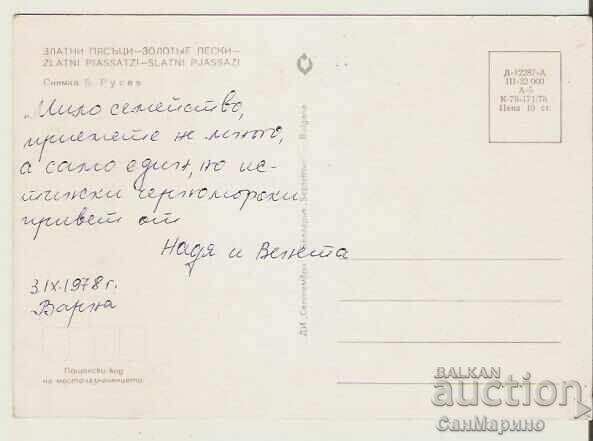 ЗЛАТНИ ПЯСЪЦИ—ЗОЛОТЫЕ ПЕСКИ—
ZLATNI PIASSATZI—SLATNI PJASSAZI
Снимка Б. Русев
„Мило семейство,
приемете не много,
а само един, но ис-
тински черноморски
привет от
Надя и Венета
3.IX.1978 г.
Варна
Пощенски код
на местоназначението
ДИ „Септември“ Bulgaria
Д-12287-А
III-22 000
А-5
К-79-171/78
Цена 10 ст.
BALKAN
auction
СанМарино